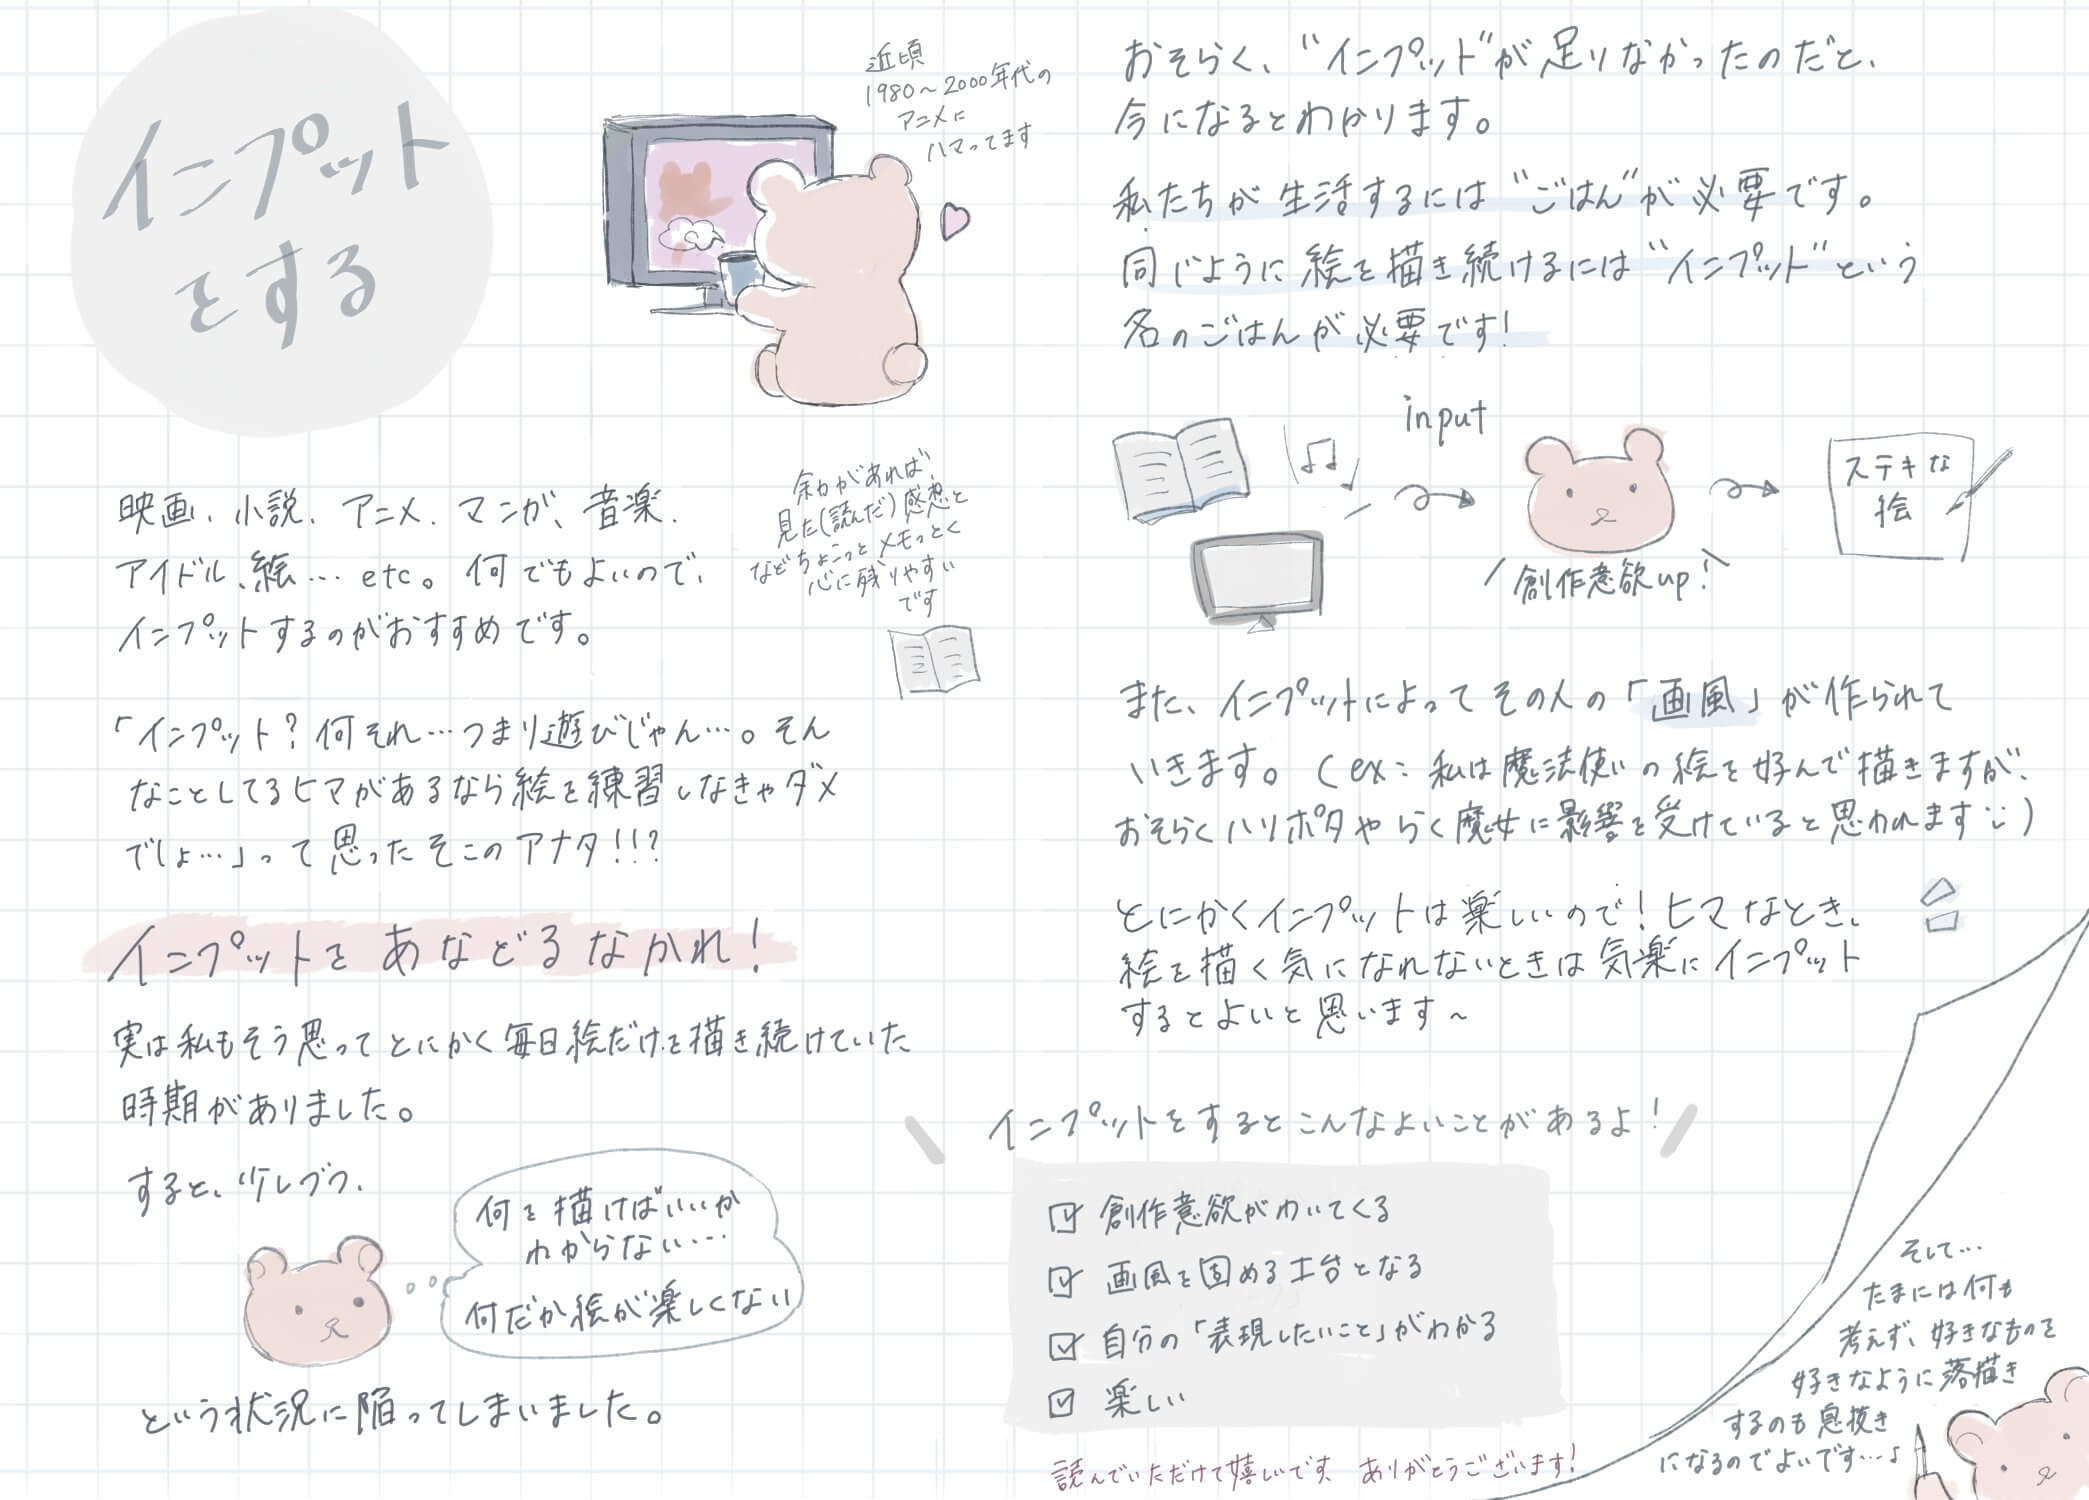 インプット
をする
近頃
1980〜2000年代の
アニメに
ハマってます
映画、小説、アニメ、マンガ、音楽、
アイドル、絵… etc。何でもよいので、
インプットするのがおすすめです。
余力があれば
見た(読んだ)感想と
などちょこっとメモっとく
心に残りやすい
です
「インプット?何それ…つまり遊びじゃん…。そん
なことしてるヒマがあるなら絵を練習しなきゃダメ
でしょ…」って思ったそこのアナタ!!?
インプットをあなどるなかれ!
実は私もそう思ってとにかく毎日絵だけを描き続けていた
時期がありました。
すると、少しづつ、
何を描けばいいか
わからない…
何だか絵が楽しくない
という状況に陥ってしまいました。
おそらく、"インプット"が足りなかったのだと、
今になるとわかります。
私たちが生活するには"ごはん"が必要です。
同じように絵を描き続けるには"インプット"という
名のごはんが必要です!
input
創作意欲up!
ステキな
絵
また、インプットによってその人の「画風」が作られて
いきます。(ex:私は魔法使いの絵を好んで描きますが、
おそらくハリポタやらく魔女に影響を受けていると思われます)
とにかくインプットは楽しいので!ヒマなとき、
絵を描く気になれないときは気楽にインプット
するとよいと思います〜
インプットをするとこんなよいことがあるよ!
創作意欲がわいてくる
画風を固める土台となる
自分の「表現したいこと」がわかる
楽しい
読んでいただけて嬉しいです、ありがとうございます!
そして…
たまには何も
考えず、好きなものを
好きなように落描き
するのも息抜き
になるのでよいです…♪